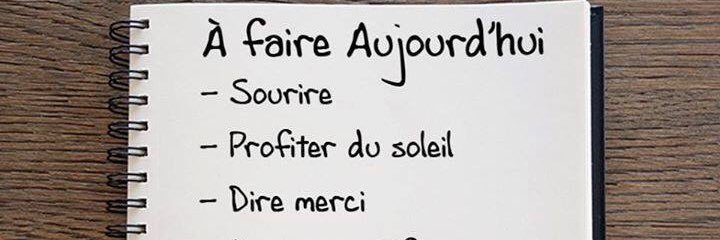 À faire Aujourd'hui
- Sourire
- Profiter du soleil
- Dire merci